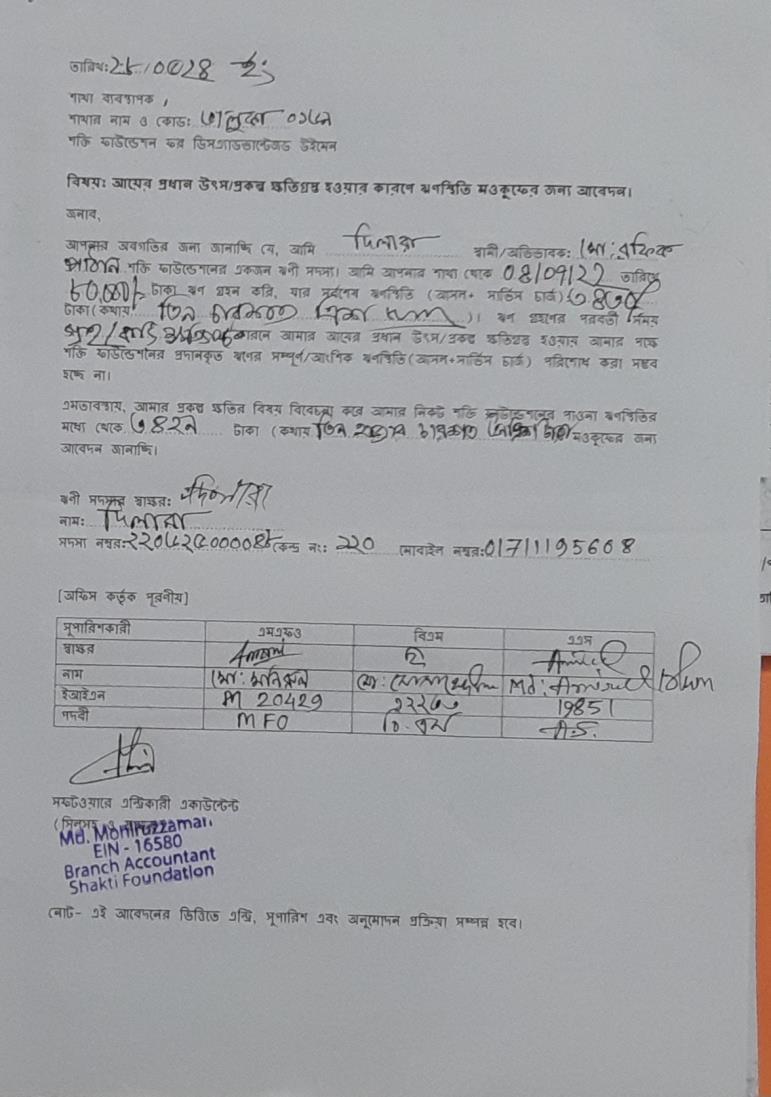 তারিখ:
শাখা ব্যবস্থাপক,
শাখার নাম ও কোড: ভালুকা
শক্তি ফাউন্ডেশন ফর ডিসএ্যাডভান্টেজড উইমেন
বিষয়: আয়ের প্রধান উৎস/প্রকল্প ক্ষতিগ্রস্থ হওয়ার কারণে ঋণস্থিতি মওকুফের জন্য আবেদন।
জনাব,
আপনার অবগতির জন্য জানাচ্ছি যে, আমি দিলারা স্বামী/অভিভাবক: মো: রফিক
শক্তি ফাউন্ডেশনের একজন ঋণী সদস্য। আমি আপনার শাখা থেকে 08/09/22 তারিখে
টাকা ঋণ গ্রহন করি, যার সর্বশেষ ঋণস্থিতি (আসল+ সার্ভিস চার্জ)
টাকা (কথায় তিন )। ঋণ গ্রহণের পরবর্তী সময়
কারনে আমার আয়ের প্রধান উৎস/প্রকল্প ক্ষতিগ্রস্থ হওয়ায় আমার পক্ষে
শক্তি ফাউন্ডেশনের প্রদানকৃত ঋণের সম্পূর্ণ/আংশিক ঋণস্থিতি (আসল+সার্ভিস চার্জ) পরিশোধ করা সম্ভব
হচ্ছে না।
এমতাবস্থায়, আমার প্রকল্প ক্ষতির বিষয় বিবেচনা করে আমার নিকট শক্তি ফাউন্ডেশনের পাওনা ঋণস্থিতির
মধ্যে থেকে টাকা (কথায় তিন হাজার টাকা মওকুফের জন্য
আবেদন জানাচ্ছি।
ঋনী সদস্যর স্বাক্ষর: দিলারা
নাম: দিলারা
সদস্য নম্বর: কেন্দ্র নং: ২২০ মোবাইল নম্বর: 01711195608
[অফিস কর্তৃক পূরণীয়]
সুপারিশকারী এমএফও বিএম এএস
স্বাক্ষর
নাম মো: মনিরুল মো: Md: Amirul Islam
ইআইএন M 20429 19851
পদবী MFO বি.এম A.S.
সফটওয়্যারে এন্ট্রিকারী একাউন্টেন্ট
Md. Moniruzzaman
EIN - 16580
Branch Accountant
Shakti Foundation
নোট- এই আবেদনের ভিত্তিতে এন্ট্রি, সুপারিশ এবং অনুমোদন প্রক্রিয়া সম্পন্ন হবে।